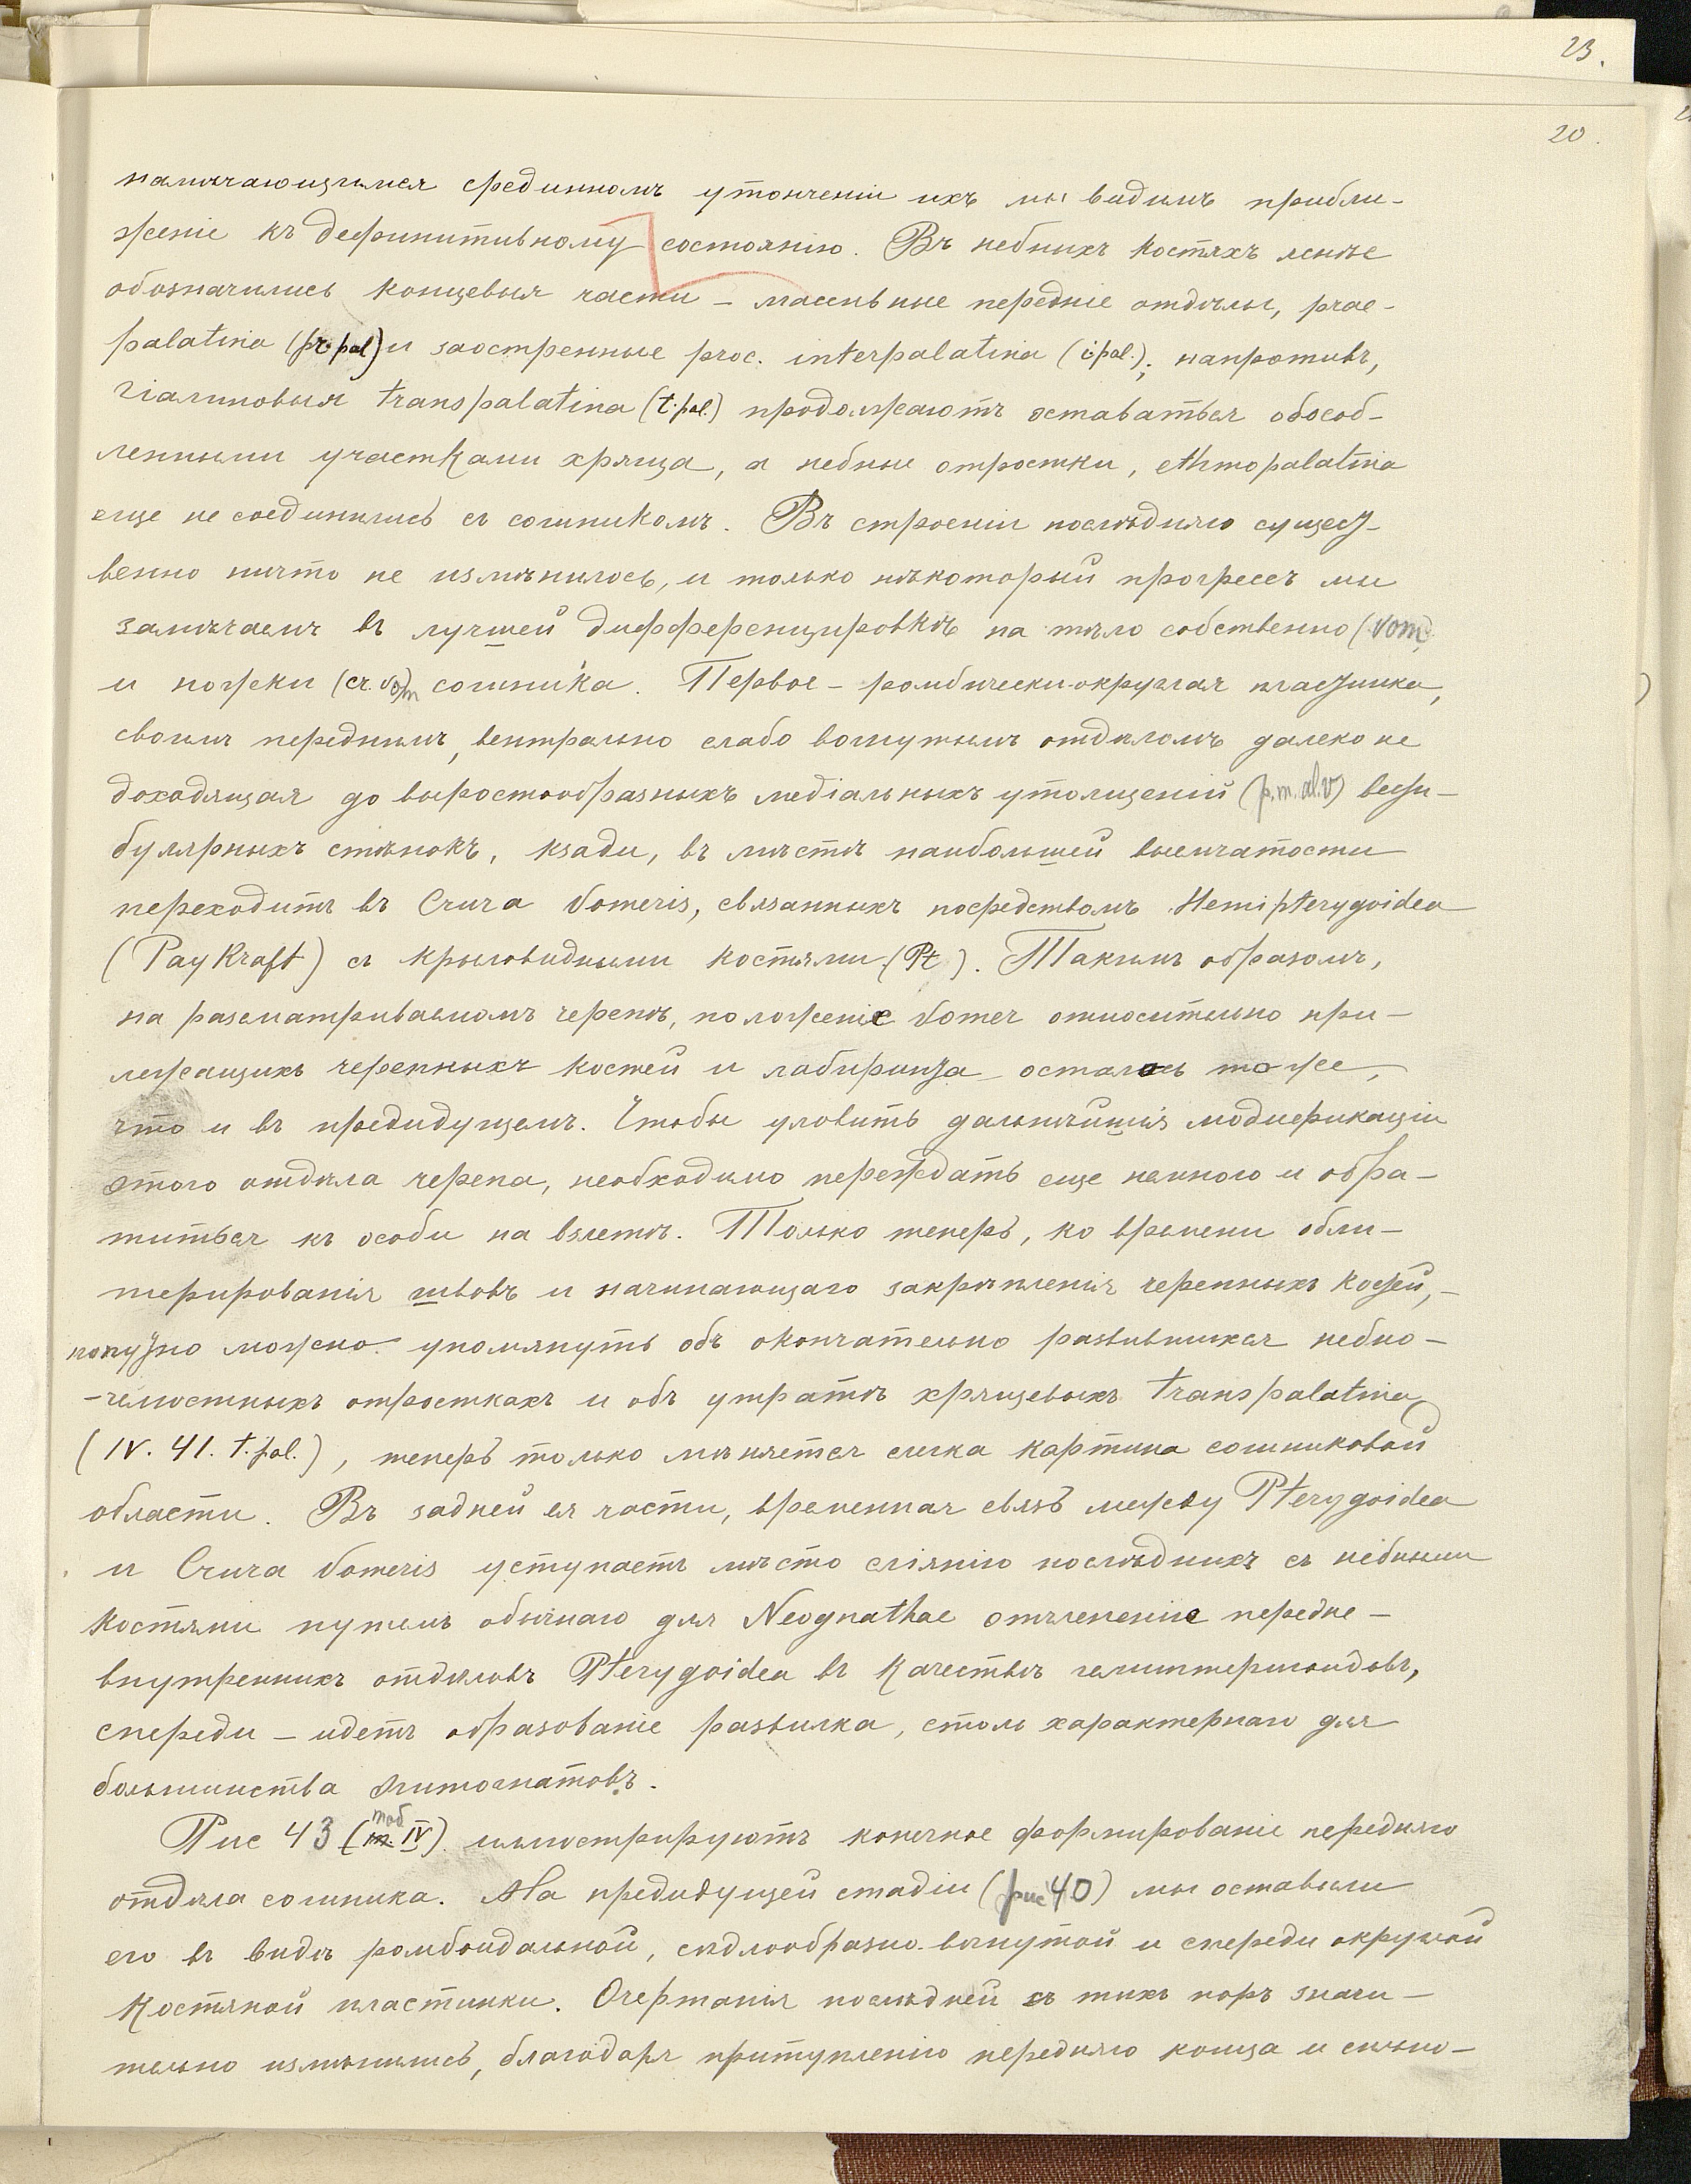 23.
20.
намѣчающимся срединномъ утонченіи ихъ мы видимъ прибли-
женіе къ дефинитивному состоянію. Въ небныхъ костяхъ яснѣе
обозначились концевыя части – массивные передніе отдѣлы, prae-
palatina (pr. pal) и заостренные proc. interpalatina (i.pal.); напротивъ,
гіалиновыя transpalatina (t.pal.) продолжаютъ оставаться обособ-
ленными участками хряща, а небные отростки, ethmopalatina
еще не соединились съ сошникомъ. Въ строеніи послѣдняго сущест-
венно ничто не измѣнилось, и только нѣкоторый прогрессъ мы
замѣчаемъ въ лучшей дифференцировкѣ на тѣло собственно (vom)
и ножки (cr. vom) сошника. Первое – ромбически-округлая пластинка,
своимъ переднимъ, вентрально слабо вогнутымъ отдѣломъ далеко не
доходящая до выростообразныхъ медіальныхъ утолщеній (p.m.al.v) вести-
булярныхъ стѣнокъ, кзади, въ мѣстѣ наибольшей выемчатости
переходитъ въ Crura Vomeris, связанныхъ посредствомъ Hemipterygoidea
(PayKraft) съ крыловидными костями (Pt). Такимъ образомъ,
на разсматриваемомъ черепѣ, положеніе Vomer относительно при-
лежащихъ черепныхъ костей и лабиринта осталось тоже,
что и въ предидущемъ. Чтобы уловить дальнѣйшія модификаціи
этого отдѣла черепа, необходимо переждать еще немного и обра-
титься къ особи на взлетѣ. Только теперь, ко времени обли-
терированія швовъ и начинающаго закрѣпленія черепныхъ костей, –
попутно можно упомянуть объ окончательно развившихся небно-
-челюстныхъ отросткахъ и объ утратѣ хрящевыхъ transpalatina
(IV. 41. t.pal.), теперь только мѣняется слегка картина сошниковой
области. Въ задней ея части, временная связь между Pterygoidea
и Crura Vomeris уступаетъ мѣсто сліянію послѣднихъ съ небными
костями путемъ обычнаго для Neognathae отчлененіе передне-
внутреннихъ отдѣловъ Pterygoidea въ качествѣ гемиптеригоидовъ,
спереди – идетъ образованіе развилка, столь характернаго для
большинства шизогнатовъ.
Рис 43 (таб IV) иллюстрируютъ конечное формированіе передняго
отдѣла сошника. На предидущей стадіи (рис 40) мы оставили
его въ видѣ ромбоидальной, сѣдлообразно-вогнутой и спереди округлой
костяной пластинки. Очертанія послѣдней съ тѣхъ поръ значи-
тельно измѣнились, благодаря притупленію передняго конца и сильно-